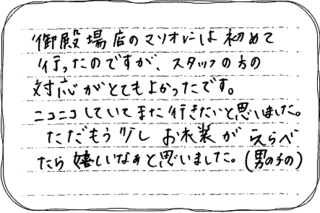 御殿場店のマリオには初めて
行ったのですが、スタッフの方の
対応がとてもよかったです。
ニコニコしていてまた行きたいと思いました。
ただもう少しお衣装がえらべ
たら嬉しいなぁと思いました。(男の子の)